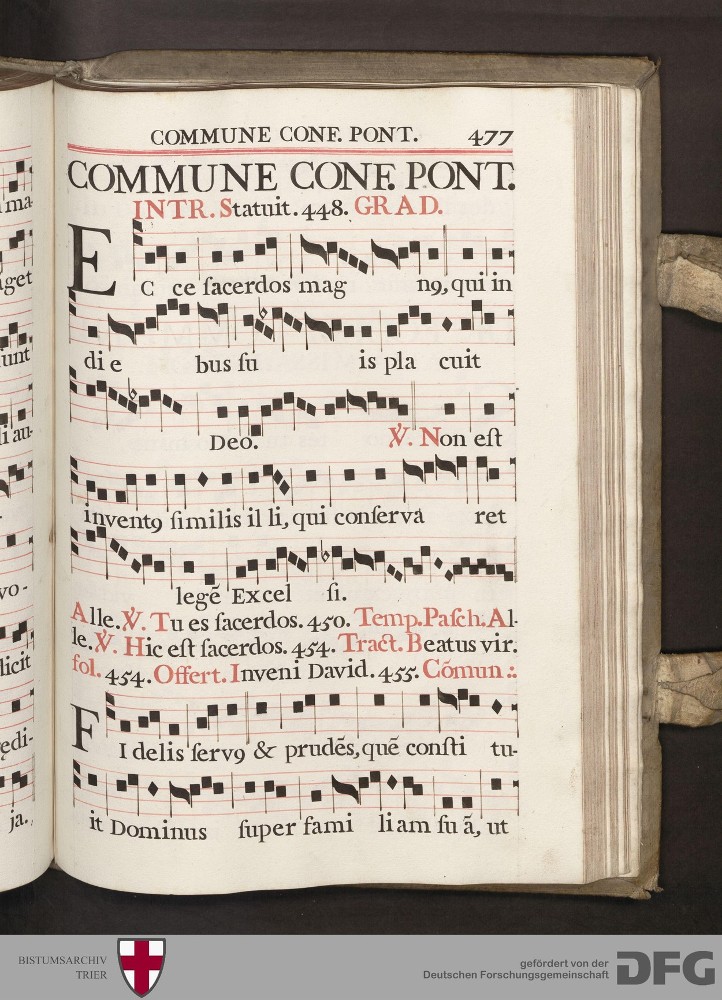 ma-
get
iunt
li au-
vo-
licit
ędi-
ja.
COMMUNE CONF. PONT. 477
COMMUNE CONF. PONT.
INTR. Statuit. 448. GRAD.
EC ce ſacerdos mag n9, qui in
di e bus ſu is pla cuit
Deo. ℣. Non eſt
invent9 ſimilis il li, qui conſerva ret
legē Excel ſi.
Alle. ℣. Tu es ſacerdos. 450. Temp. Paſch. Al-
le. ℣. Hic eſt ſacerdos. 454. Tract. Beatus vir.
fol. 454. Offert. Inveni David. 455. Cōmun.:
FI delis ſerv9 & prudēs, quē conſti tu-
it Dominus ſuper fami liam ſu ā, ut
BISTUMSARCHIV
TRIER
gefördert von der
Deutschen Forschungsgemeinschaft
DFG